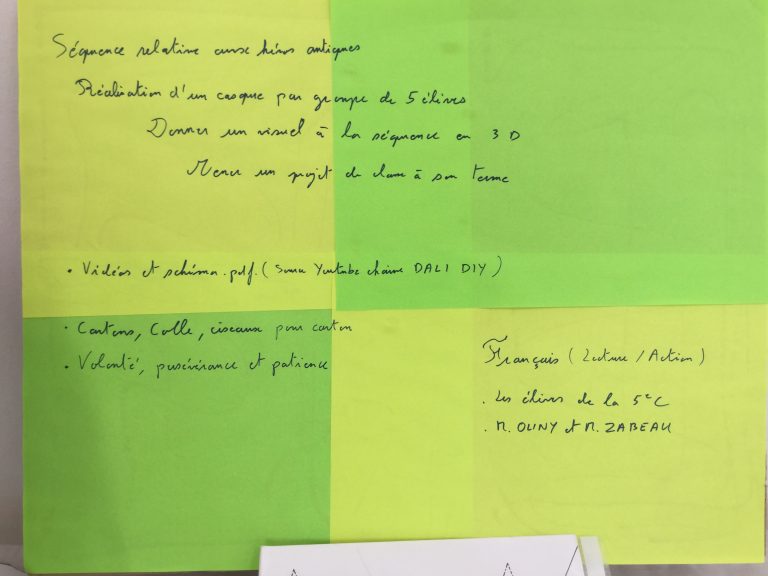 Séquence relative aux héros antiques
Réalisation d'un casque par groupe de 5 élèves
Donner un visuel à la séquence en 3 D
Mener un projet de classe à son terme
• Vidéos et schéma .pdf. ( Source Youtube chaine DALI DIY )
• Cartons, Colle, ciseaux pour carton
• Volonté, persévérance et patience
Français ( Lecture / Action )
. Les élèves de la 5e C
. M. OLINY et M. ZABEAU